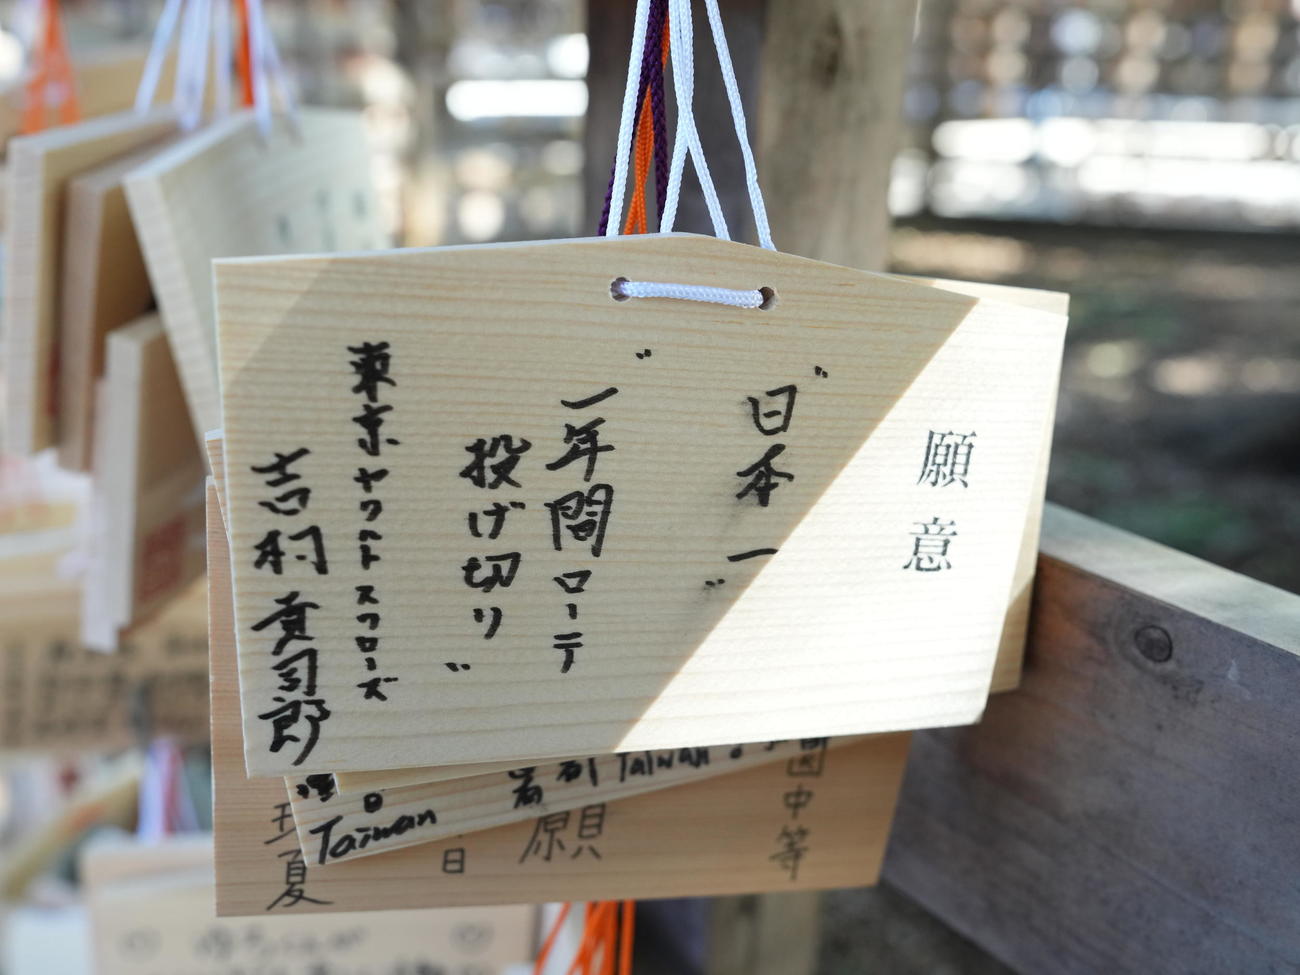 願意
〝日本一〟
〝一年間ローテ
投げ切り〟
東京ヤクルトスワローズ
吉村貢司郎
Taiwan
Taiwan
日
願
中等
夏